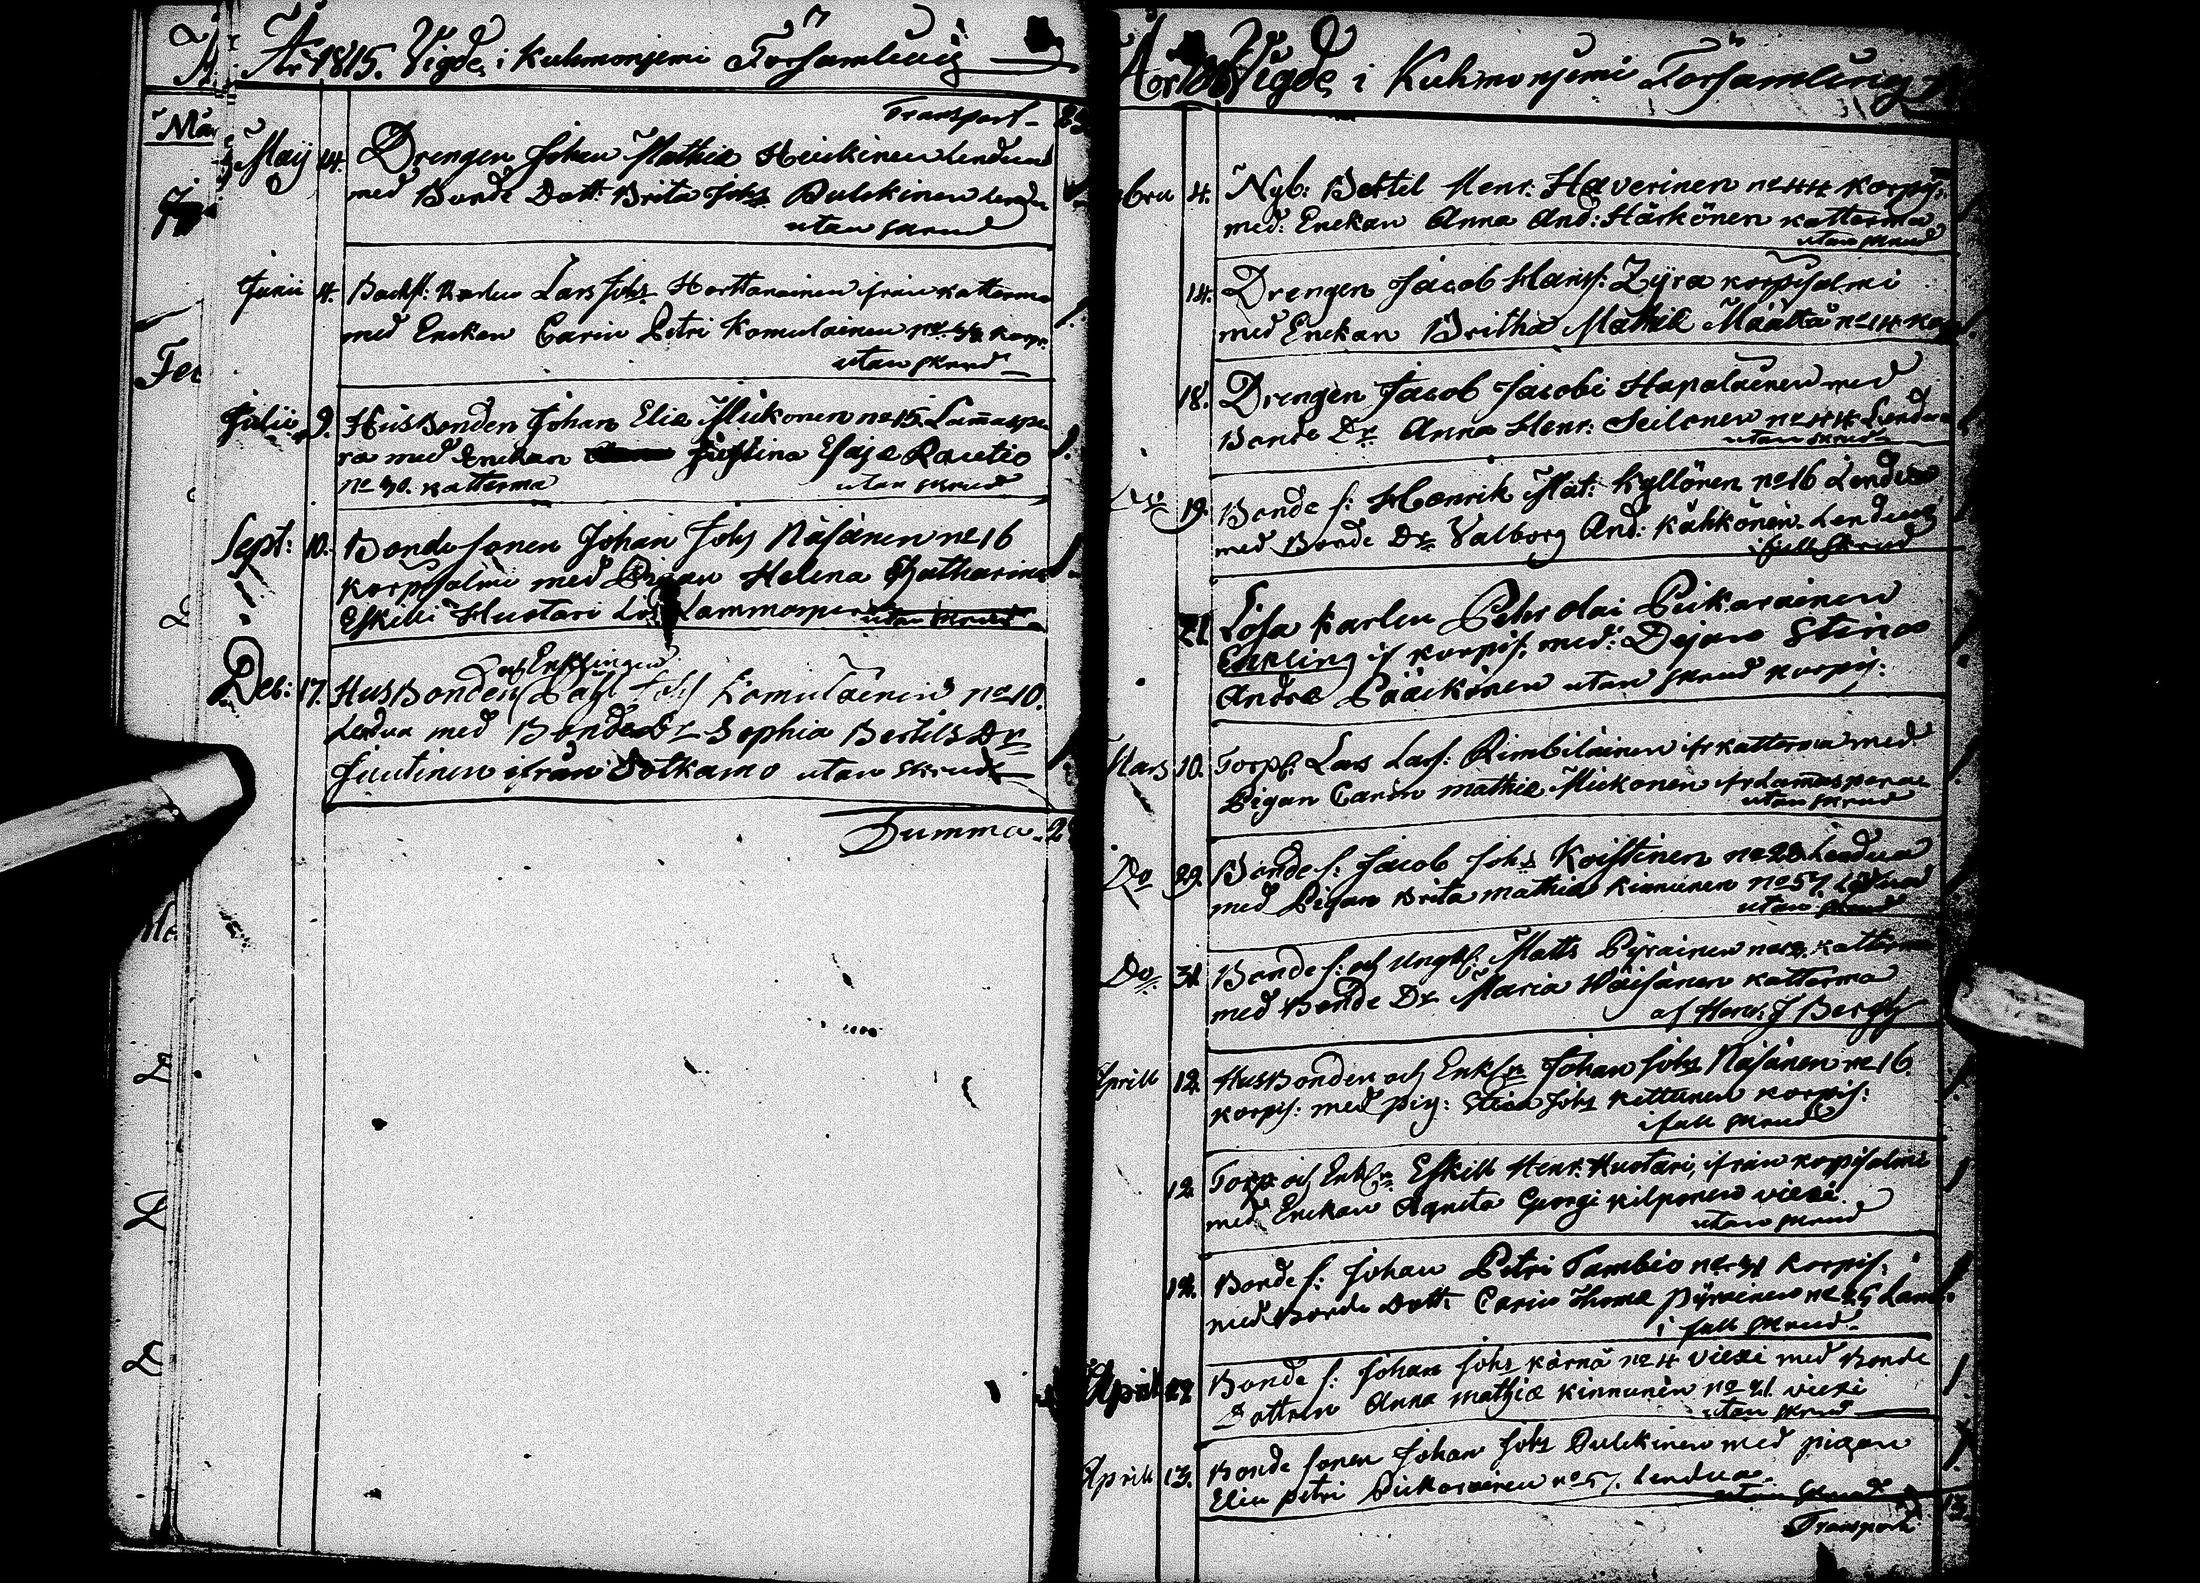 År 1815. Vigde i Kuhmoniemi Församling
Transport
Maij 14. Drengen Johan Mathiæ Heickinen Lendua
med Bonde Dott: Brita Johs Pulckinen Lendu
utan skrud
Junii 4. Lars Johs Horttanainen ifrån Katterma
med Enckan Carin Petri Komulainen No Korp:
utan skrud
Julii 9. Husbonden Johan Eliæ Mickonen No 15. Lam̄aspe
ra med Enckan Justina Esajæ Rautio
No 30. Katterma utan skrud
Sept: 10. Bondesonen Johan Johs Näsänen No 16
Korpisalmi med Pigan Helena Catharina
Eskilli Huotari Lammasper utan skrud
och Enklingen
Deb: 17. Husbonden Påhl Johs Komulainen No 10.
Lendua med Bonde Dr Sophia Bertils Dr
Juutinen ifrån Sotkamo utan skrud
Summa
Vigde i Kuhmoniemi Församling
4. Nyb: Bertel Henr: Haverinen No 44 Korpis:
med: Enckan Anna And: Härkönen Katterma
utan skrud
14. Drengen Jacob Hansf: Zyra Korpisalmi
med Enckan Britha Mathiæ Määttä No 14 Ko
18. Drengen Jacob Jacobi Hapalainen med
Bonde Dr Anna Henr: Seilonen No 44 Lendua
utan skrud
Do 19. Bonde s: Henrik Mat: Kyllönen No 16 Lendua
med Bonde Dr Valborg And: Kähkönen Lendua
i full skrud
21 Lösa Karlen Pehr Olai Pickarainen
Enkling if Korpis: med: Dejan Stina
Andræ Pääckönen utan skrud Korpis:
Mars 10. Torp: Lars Lars: Rimbiläinen ifr Katterma med
Pigan Carin Mathiæ Mickonen ifr Lam̄asperæ
utan skrud
Do 29. Bonde s: Jacob Johs Koistinen No 28 Lendua
med Pigan Brita Mathiæ Kinnunen No 57. Lendua
utan skrud
Do 31 Bonde s: och Ungk: Matts Pyrainen Katterma
med Bonde Dr Maria Wäisänen Katterma
af Herr: J Bergh
Aprill 12. Husbonden och Enkln Johan Johs Näsänen No 16.
Korpis: med pig: Stina Johs Kettunen Korpis:
i full skrud
12 Torp och Enkln Eskill Henr: Huotari, ifrån Korpisalmi
med Enckan Agneta Georgi Kilponen Viexi
utan skrud
12. Bonde s: Johan Petri Tambio No 31 Korpis:
med Bonde Dott: Carin Thomæ Pyrainen No 25 Lam
i full skrud
April 12 Bonde s: Johan Johs Kärnä No 4 Viexi med Bonde
Dottren Anna Mathiæ Kinnunen No 21. Viexi
utan skrud
Aprill 13. Bonde sonen Johan Johs Pulckinen med pigan
Elin Petri Pickarainen No 57. Lendua
utan skrud
Transport 13